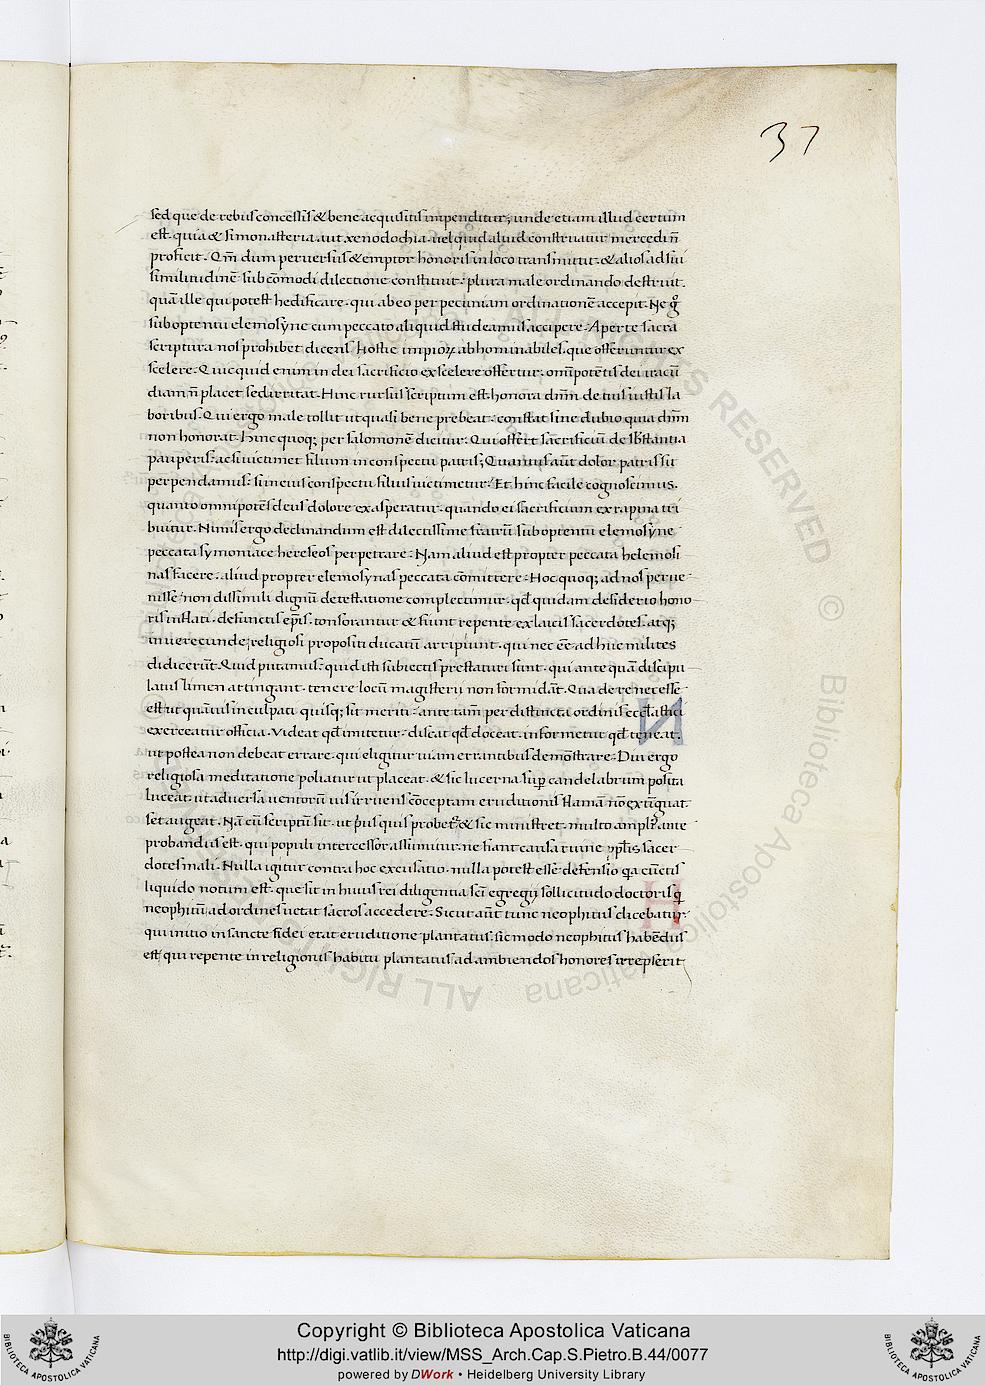 37
sed que de rebus concessis & bene acquisitis impenditur; unde etiam illud certum
est. quia & si monasteria aut xenodochia. uel quid aliud construatur mercedi n̄
proficit. Qm̄ dum peruersus & emptor honoris in loco transmittitur. & alios ad sui
similitudinē sub cōmodi dilectione constituit. plura male ordinando destruit.
quā ille qui potest hedificare. qui ab eo per pecuniam ordinationē accepit. Ne g̊
sub optentu elemosyne cum peccato aliquid studeamus accipere. Aperte sacra
scriptura nos prohibet dicens. Hostie impioꝝ abhominabiles. que offeruntur ex
scelere. Quicquid enim in dei sacrificio ex scelere offertur. omīpotētis dei iracū
diam n̄ placet sed irritat. Hinc rursus scriptum est. honora dn̄m de tuis iustis la
boribus. Qui ergo male tollit ut quasi bene prebeat. constat sine dubio quia dn̄m
non honorat. Hinc quoq; per salomonē dicitur. Qui offert sacrificiū de sb̄stantia
pauperis. ac si uictimet filium in conspectu patris; Quantus aūt dolor patris sit
perpendamus. si in eius conspectu filius uictimetur. Et hinc facile cognoscimus.
quanto omnipotēs deus dolore exasperatur. quando ei sacrificium ex rapina tri
buitur. Nimis ergo declinandum est dilectissime fratrū sub optentu elemosȳne
peccata symoniace hereseos perpetrare. Nam aliud est propter peccata helemosi
nas facere. aliud propter elemosynas peccata cōmittere. Hoc quoq; ad nos perue
nisse non dissimili dignū detestatione complectimur. qd̄ quidam desiderio hono
ris inflati. defunctis ep̄is. tonsorantur & fiunt repente ex laicis sacerdotes. atq;
inuerecunde religiosi propositi ducatū arripiunt. qui nec eē adhuc milites
didicerūt. Quid putamus. quid isti subiectis prestaturi sunt. qui ante quā discipu
latus limen attingant. tenere locū magisterij non formidāt. Qua de re necesse
est ut quāuis inculpati quisq; sit meriti. ante tam̄ per distincta ordinis eccl̄astici
exerceatur officia. Videat qd̄ imitetur. discat qd̄ doceat. informetur qd̄ teneat.
ut postea non debeat errare. qui eligitur uiam errantibus demōstrare. Diu ergo
religiosa meditatione poliatur ut placeat. & sic lucerna sup̄ candelabrum posita
luceat. ut aduersa uentorū uis irruens cōceptam eruditionis flamā nō extīguat
set augeat. Nā cū scriptū sit. ut p̄us quis probet̄. & sic ministret. multo ampl̄ ante
probandus est. qui populi intercessor assumitur. ne fiant causa ruine ꝓpl̄is sacer
dotes mali. Nulla igitur contra hoc excusatio. nulla potest esse defensio q̄a cūctis
liquido notum est. que sit in huius rei diligentia sc̄i egregij sollicitudo doctoris q̄
neophitū ad ordines uetat sacros accedere. Sicut aūt tunc neophitus dicebatur
qui initio in sancte fidei erat eruditione plantatus. sic modo neophitus habēdus
est qui repente in religionis habitu plantatus ad ambiendos honores irrepserit
ALL RIGHTS RESERVED © Biblioteca Apostolica Vaticana
Copyright © Biblioteca Apostolica Vaticana
http://digi.vatlib.it/view/MSS_Arch.Cap.S.Pietro.B.44/0077
powered by DWork • Heidelberg University Library
BIBLIOTECA APOSTOLICA VATICANA
BIBLIOTECA APOSTOLICA VATICANA